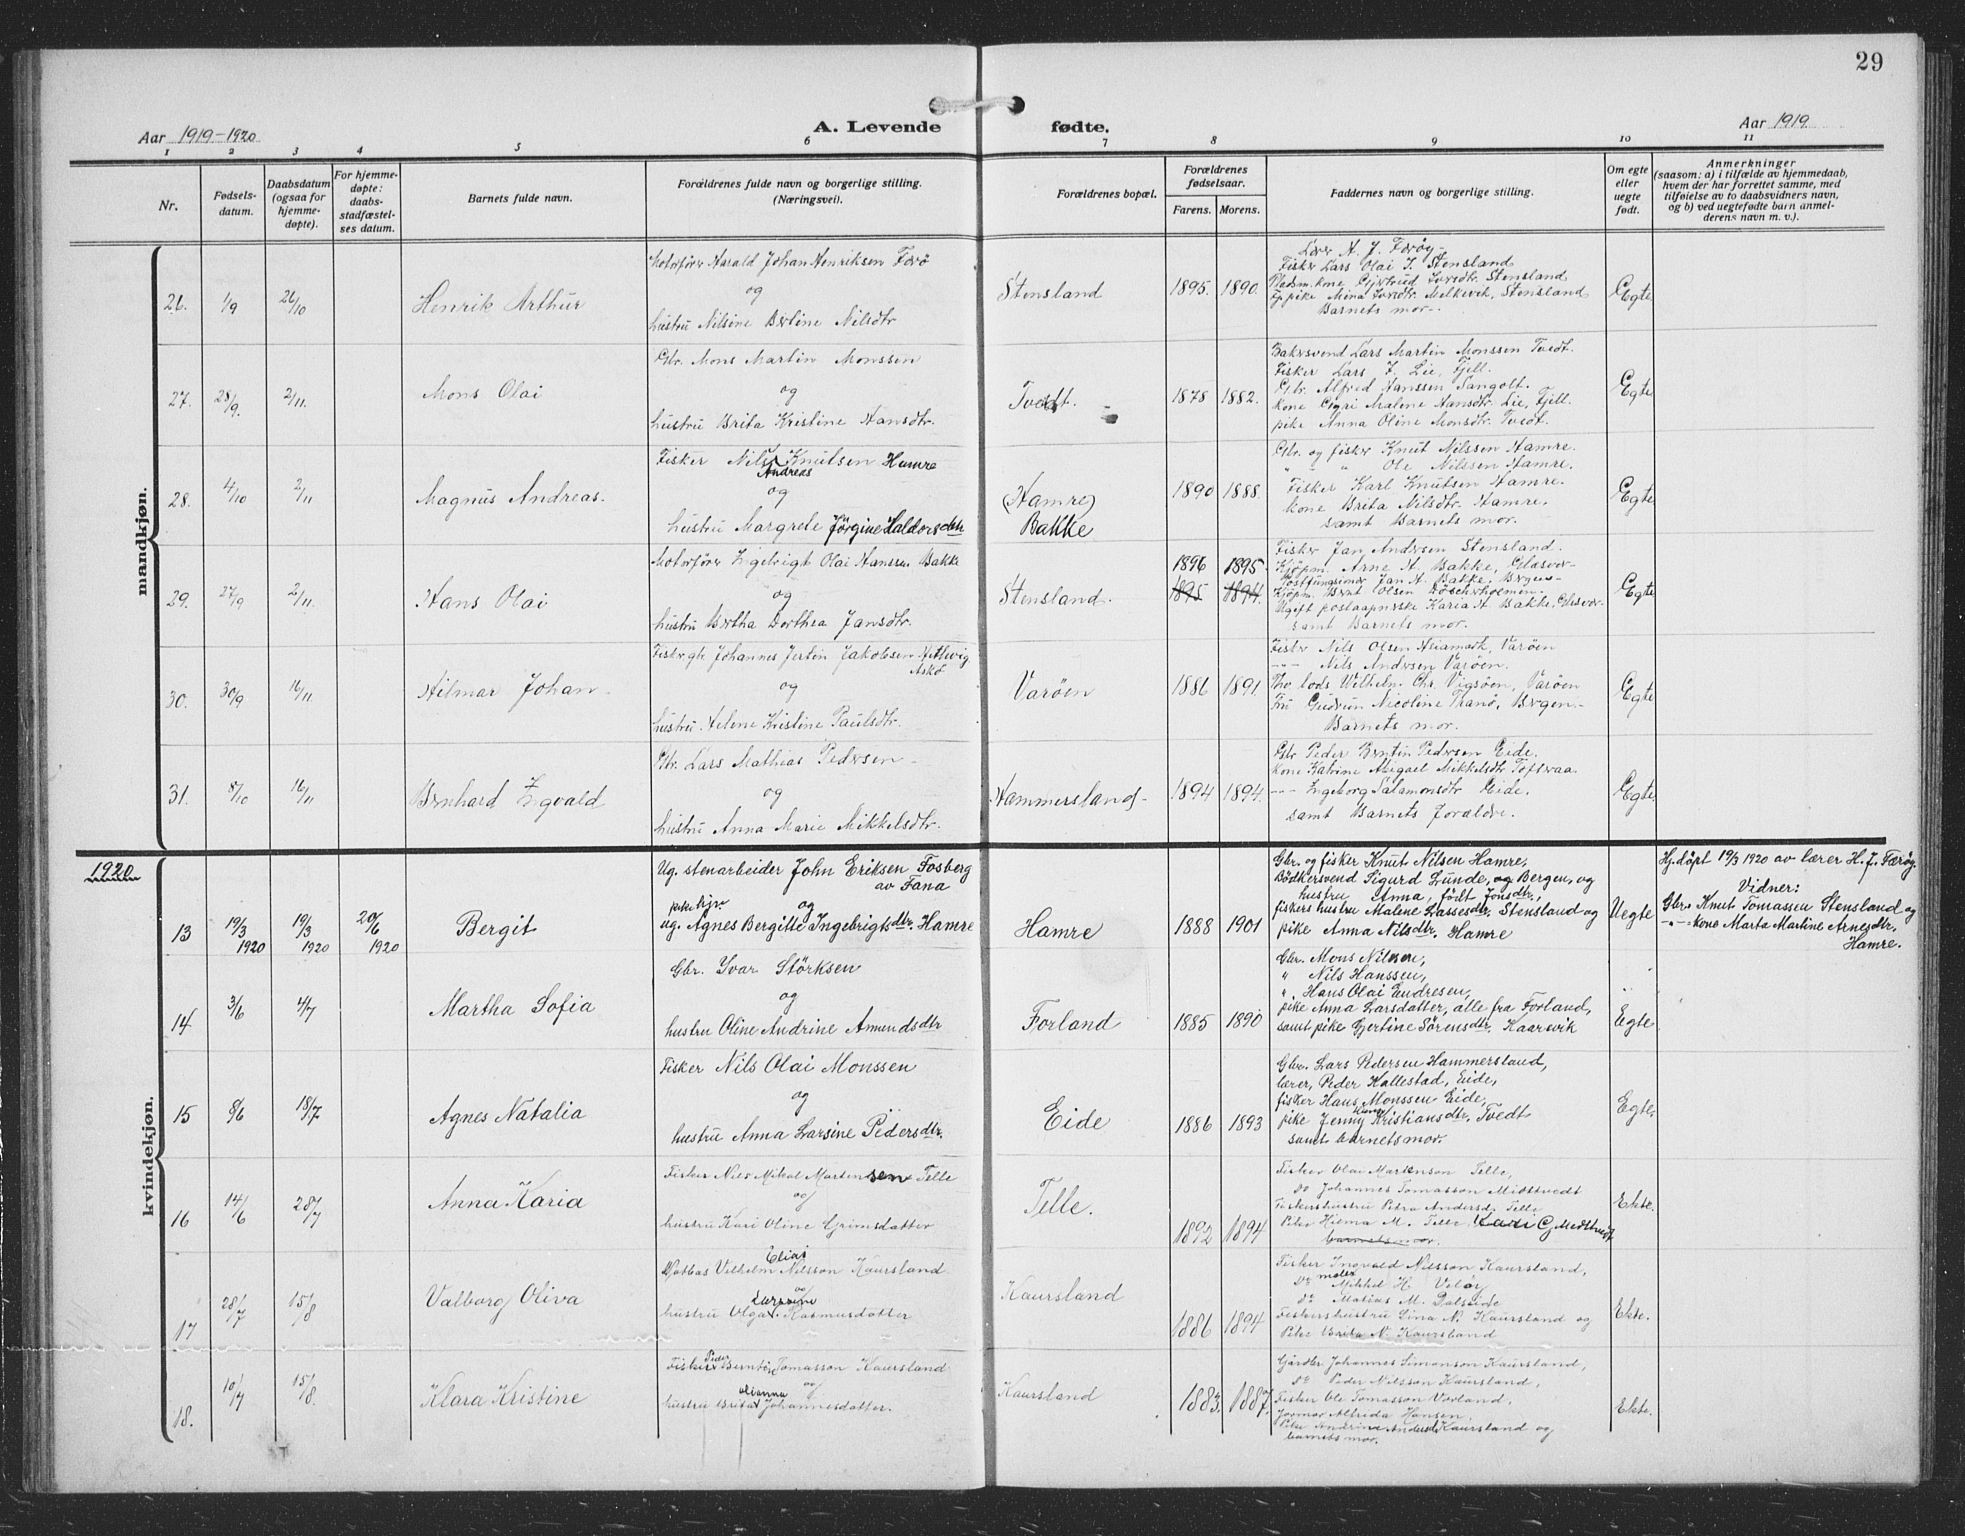 29
Aar 1919-1920
A. Levende fødte.
Aar 1919.
1 2 3 4 5 6 7 8 9 10 11
Nr.
Fødsels-
datum.
Daabsdatum
(ogsaa for
hjemme-
døpte).
For hjemme-
døpte:
daabs-
stadfæstel-
ses datum.
Barnets fulde navn.
Forældrenes fulde navn og borgerlige stilling.
(Næringsvei).
Forældrenes bopæl.
Forældrenes
fødselsaar.
Farens. Morens.
Faddernes navn og borgerlige stilling.
Om egte
eller
uegte
født.
Anmerkninger
(saasom: a) i tilfælde av hjemmedaab,
hvem der har forrettet samme, med
tilføielse av to daabsvidners navn,
og b) ved uegtefødte barn anmel-
derens navn m. v.).
mandkjøn.
26. 1/9 26/10 Henrik Arthur
Motorfører Harald Johan Henriksen Førö
og
hustru Nilsine Bertine Nilsdtr
Stensland 1895. 1890.
Lærer H. J. Færöy
Fisker Lars Olai J. Stensland
Pladsm. kone Gjertrud Iversdtr. Stensland
pike Mina Iversdtr. Melkevik, Stensland
Barnets mor
Egte
27. 28/9. 2/11. Mons Olai
Gbr. Mons Martin Monssen
og
hustru Brita Kristine Hansdtr.
Tvedt. 1878 1882.
Bakersvend Lars Martin Monssen Tvedt.
Fisker Lars J. Lie, Fjell.
Gbr. Alfred Hanssen Sangolt.
kone Guri Malene Hansdtr. Lie, Fjell.
pike Anna Oline Monsdtr. Tvedt.
Egte
28. 4/10 2/11 Magnus Andreas.
Fisker Nils Knutsen Hamre
Andreas
og
hustru Margrete Jörgine Haldorsdtr
(Hamre)
Bakke
1890 1888.
Gbr. og fisker Knut Nilssen Hamre.
" " " Ole Nilssen Hamre.
Fisker Karl Knutsen Hamre.
kone Brita Nilsdtr. Hamre.
samt Barnets mor.
Egte
29. 27/9 2/11. Hans Olai
Motorfører Ingebrigt Olai Hanssen Bakke
og
hustru Bertha Dorthea Jansdtr.
Stensland.
1896 1895.
1895 1894.
Fisker Jan Andersen Stensland.
Kjöpm. Arne H. Bakke, Glesvær
Jan H. Bakke, Bergen
Kjöpm. Bernt Olsen Döscherholmen
Ugift postaapnerske Karia H. Bakke, Glesvær
samt Barnets mor.
Egte
30. 30/9 16/11. Hilmar Johan
Fisker gbr Johannes Jertin Jakobsen Hetlevig
Askö
og
hustru Helene Kristine Paulsdtr.
Varöen 1886 1891.
Fisker Nils Olsen Heiamark, Varöen
Nils Andersen Varöen.
lods Wilhelm Chr. Vigsöen, Varöen
Fru Gudrun Nicoline Thanö, Bergen
Barnets mor.
Egte
31. 8/10 16/11 Bernhard Ingvald
Gbr. Lars Mathias Pedersen
og
hustru Anna Marie Mikkelsdtr.
Hammersland 1894 1894.
Gbr Peder Berntin Pedersen Eide.
kone Katrine Abigael Mikkelsdtr Tofteraa
Ingeborg Salamonsdtr Eide.
samt Barnets foraldre.
Egte.
1920
kvindekjøn.
13 19/3 1920 19/3 1920 20/6 1920 Bergit
Ug. stenarbeider John Eriksen Fosberg
av Fana
og
ug. Agnes Bergitte Ingebrigtsdtr. Hamre
Hamre 1888 1901
Gbr. og fisker Knut Nilsen Hamre,
Bödkersvend Sigurd Lunde, og Bergen, og
hustru Anna, födt Jonsdtr.,
fiskers hustru Malene Lassesdtr. Stensland og
pike Anna Nilsdtr. Hamre
Uegte
Hj. döpt 19/3 1920 av lærer H. J. Færöy.
Vidner:
Gbr. Knut Tomassen Stensland og
kone Marta Martine Arnesdtr.
Hamre.
14 3/6 4/7 Martha Sofia
Gbr. Yvar Störksen
og
hustru Oline Andrine Amundsdtr
Forland 1885 1890
Gbr. Mons Nilsen,
" Nils Hanssen,
" Hans Olai Endresen,
pike Anna Larsdatter, alle fra Forland,
samt pike Gjertine Sörensdtr. Kaarevik
Egte
15 8/6 18/7 Agnes Natalia
Fisker Nils Olai Monssen
og
hustru Anna Larsine Pedersdtr.
Eide 1886 1893
Gbr. Lars Pedersen Hammersland,
lærer, Peder Hallestad, Eide,
fisker Hans Monssen Eide,
pike Jenny Kristiansdtr. Tvedt
samt barnets mor.
Egte
16 14/6 28/7 Anna Karia
Fisker Nils Mikal Martensen Telle
og
hustru Kari Oline Grimsdatter
Telle. 1892 1894
Fisker Olai Martenson Telle,
Do Johannes Tomasson Midttvedt
Fiskerhustru Petra Andersd. Telle
Pike Hilma M. Telle Kari G. Midttvedt
barnets mor.
Ekte.
17 28/7 15/8 Valborg Oliva
Elias
Matias Vilhelm Nilsson Kaursland
og
Larsine
hustru Olga Rasmusdatter
Kaursland 1886 1894
Fisker Ingvald Nilsson Kaursland,
Do Mikkel H. Velöy
Do Matias M. Dalseide
Fiskerhustru Lina N. Kaursland og
Pike Brita N. Kaursland
Ekte.
18. 10/7 15/8. Klara Kristine
Peder
Fisker Berntin Tomasson Kaursland
og
olianna
hustru Brita Johannesdatter.
Kaursland 1883. 1887.
Gardbr Johannes Simonson Kaursland,
Do Peder Nilsson Kaursland,
Fisker Ole Tomasson Vorland,
Jormor Alfrida Hansen,
Pike Andrine Andersd. Kaursland og
barnets mor.
Ekte.